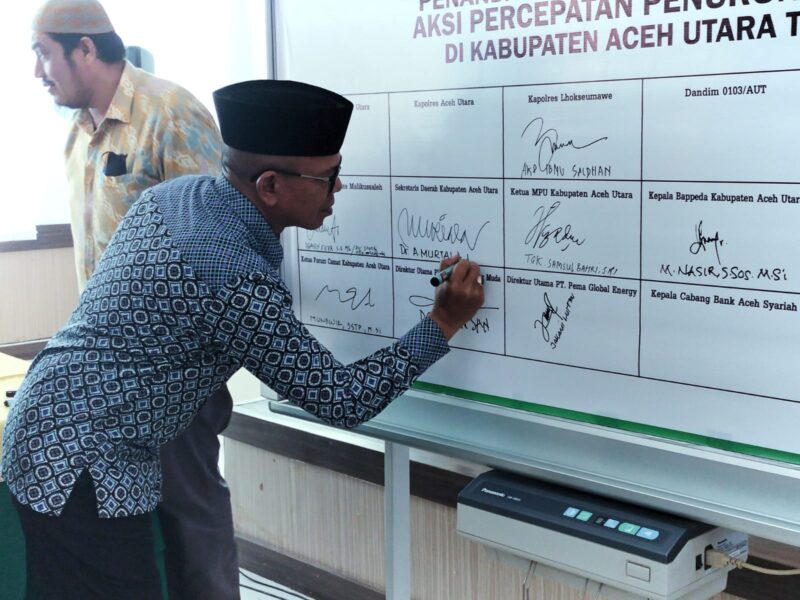 AKSI PERCEPATAN
DI KABUPATEN ACEH UTARA T
Utara
Kapolres Aceh Utara
Kapolres Lhokseumawe
Dandim 0103/AUT
AKP IBNU SALDHAN
Malikussaleh
Sekretaris Daerah Kabupaten Aceh Utara
Ketua MPU Kabupaten Aceh Utara
Kepala Bappeda Kabupaten Aceh Utar
Dr A. MURTALA
TGK. SAMSUL BAHRI, S.HI
M. NASIR, S.SOS. M.Si
Ketua Forum Camat Kabupaten Aceh Utara
Direktur Utama
Muda
Direktur Utama PT. Pema Global Energy
Kepala Cabang Bank Aceh Syariah
MUNAWIR, SSTP, M.Si
Panasonic